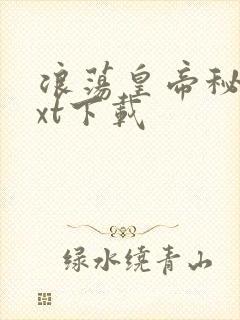 浪荡皇帝秘
xt下载
绿水绕青山